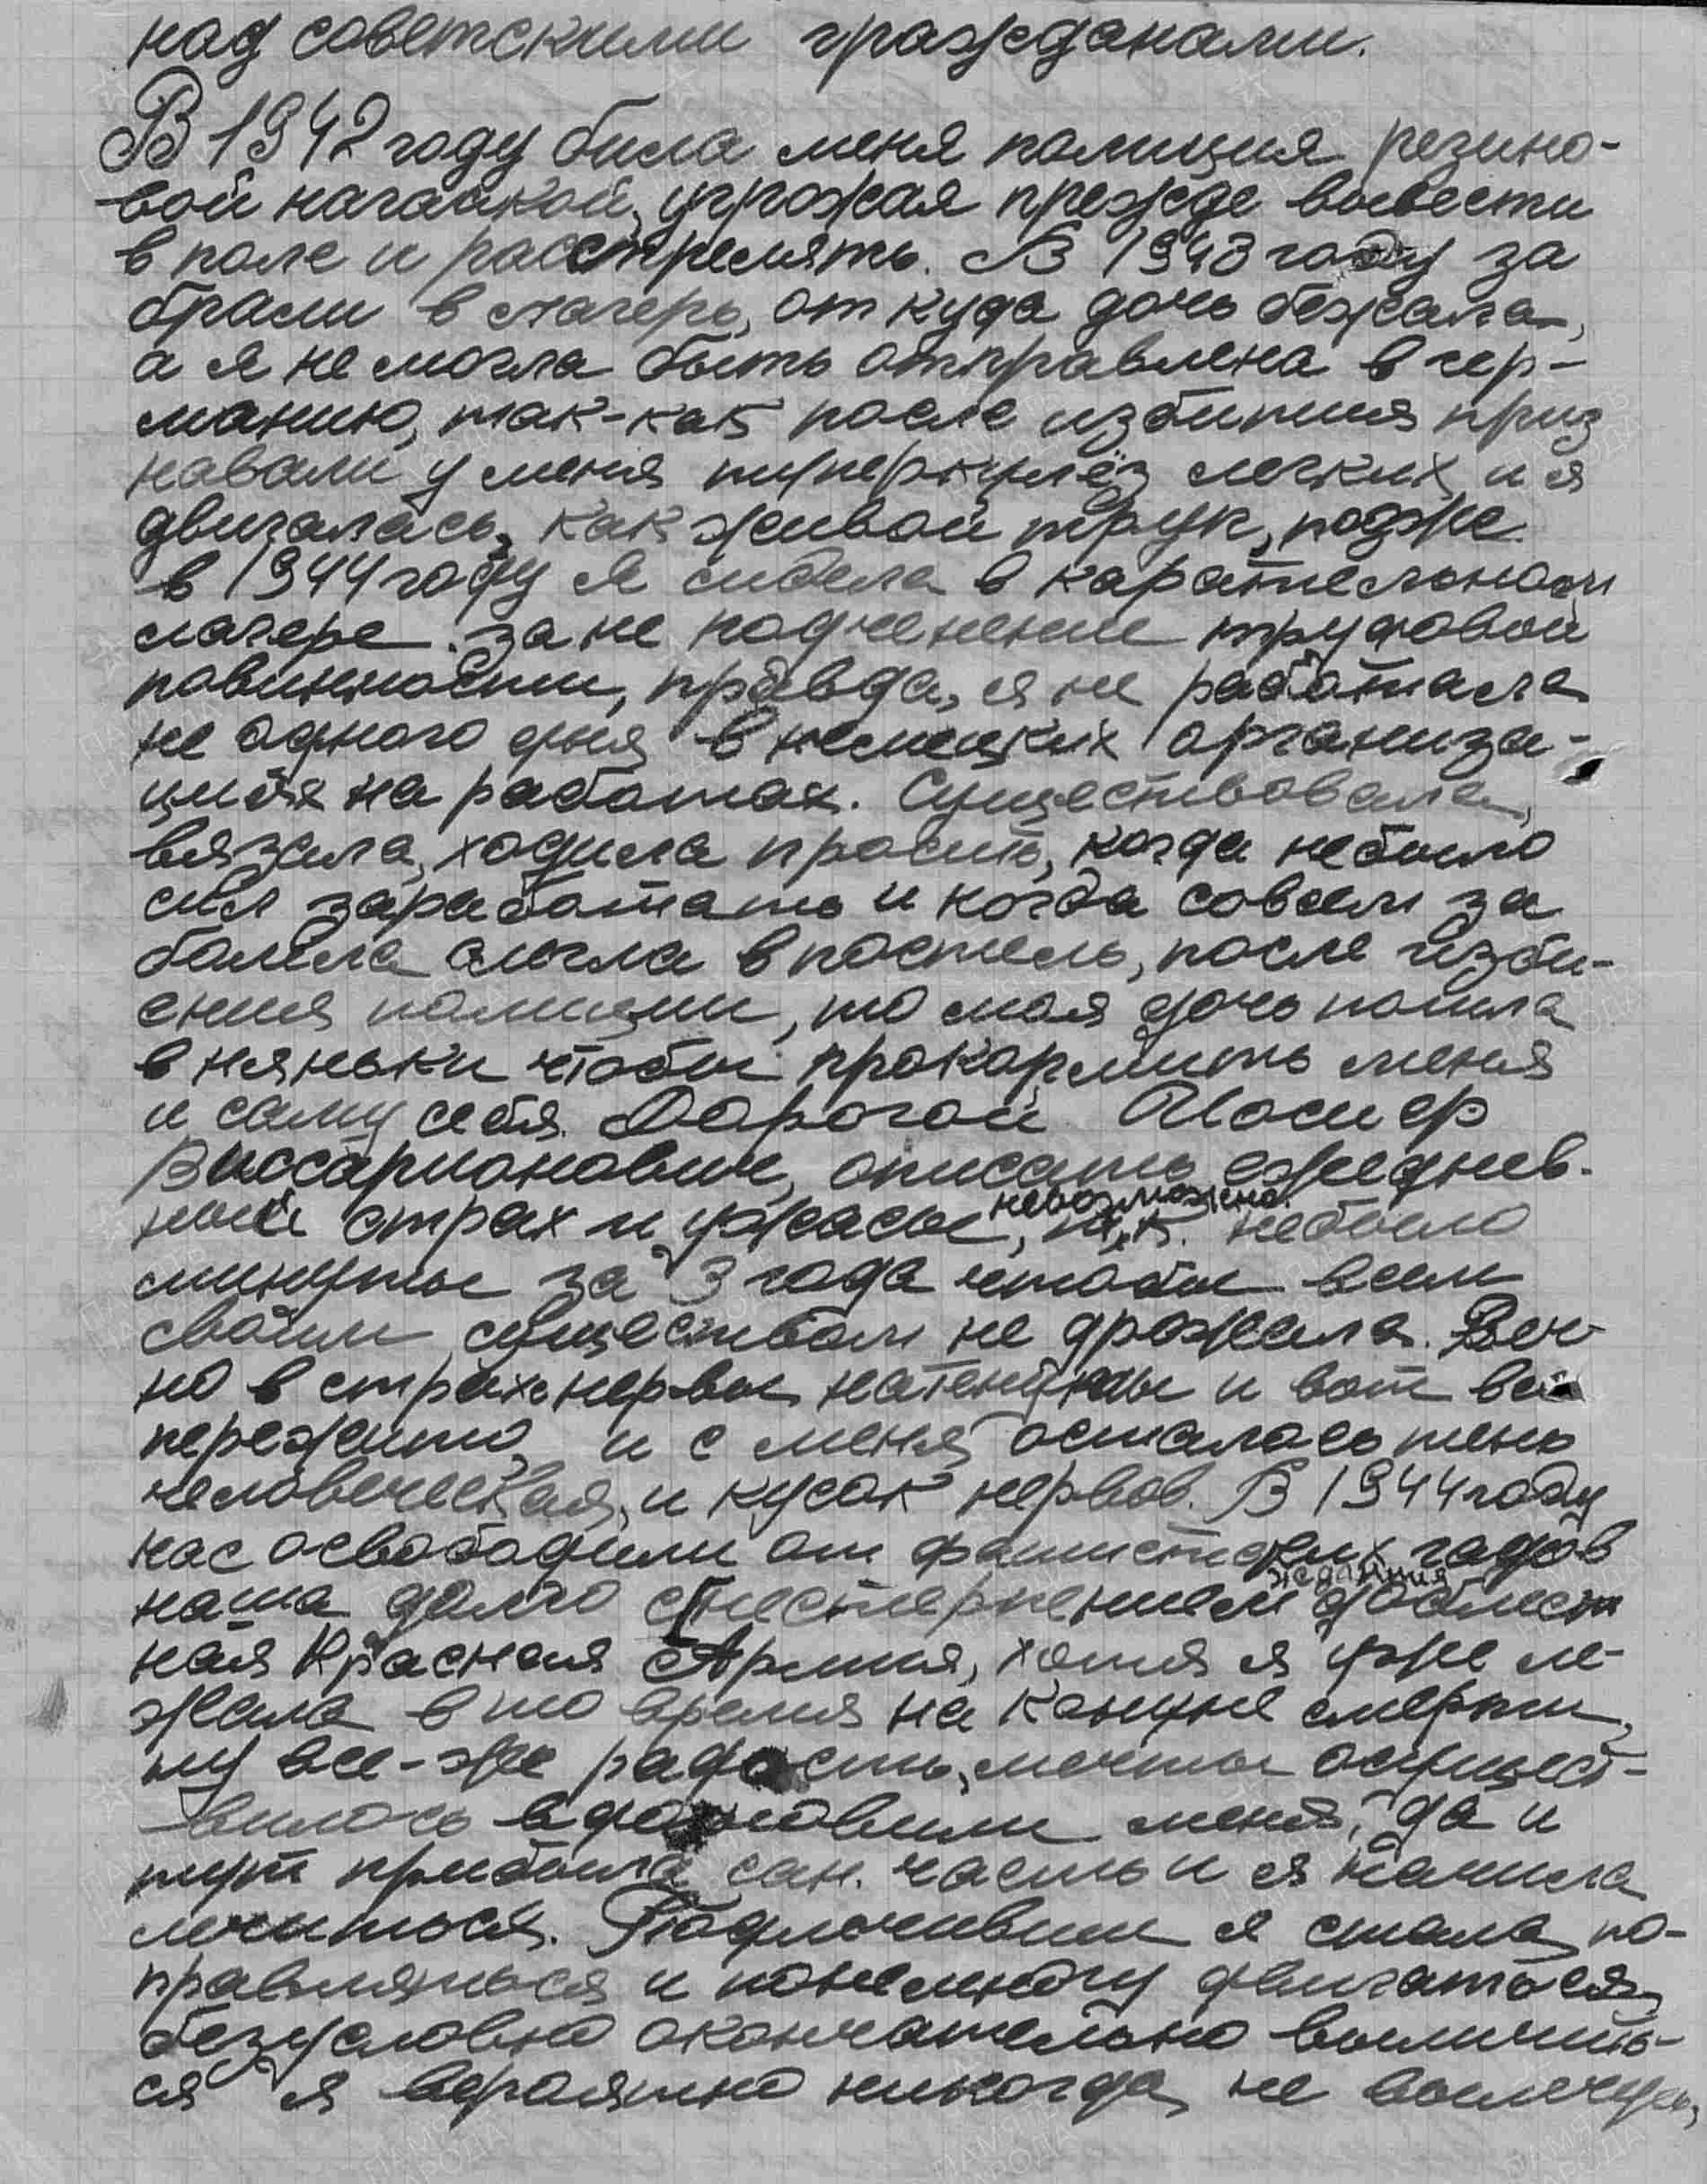 над советскими гражданами.
В 1942 году била меня полиция резино-
вой нагайкой, угрожая прежде вывести
в поле и расстрелять. В 1943 году за
брали в лагерь, от куда дочь бежала,
а я не могла быть отправлена в гер-
манию, так-как после избития приз
навали у меня туперкулёз легких и я
двигалась, как живой труп, подже
в 1944 году я сидела в карательном
лагере за не подченение трудовой
повинности, правда, я не работала
не одного дня в немецких организа-
циях на работах. Существовала,
вязала, ходила просить, когда небыло
сил заработать и когда совсем за
болела слегла в постель, после изби-
ения полиции, то моя дочь пошла
в няньки чтобы прокормить меня
и саму себя. Дорогой Иосиф
Виссарионович, описать ежеднев-
ный страх и ужасы невозможно, т.к. небыло
минуты за 3 года чтобы всем
своим существом не дрожала. Веч-
но в страхе нервы натенуты и вот всё
пережито, и с меня осталась тень
человеческая, и кусок нервов. В 1944 году
нас освободили от фашистских гадов
наша долго с нестерпением жданная доблест
ная Красная Армия, хотя я уже ле-
жала в то время на кануне смерти,
ну все-же радость, мечты осущест-
вилось вдохновили меня, да и
тут прибыла сан. часть и я начила
лечиться. Подлечивши я стала по-
правляться и понемногу двигаться,
безусловно окончательно вылечить-
ся я вероятно никогда не вылечусь,